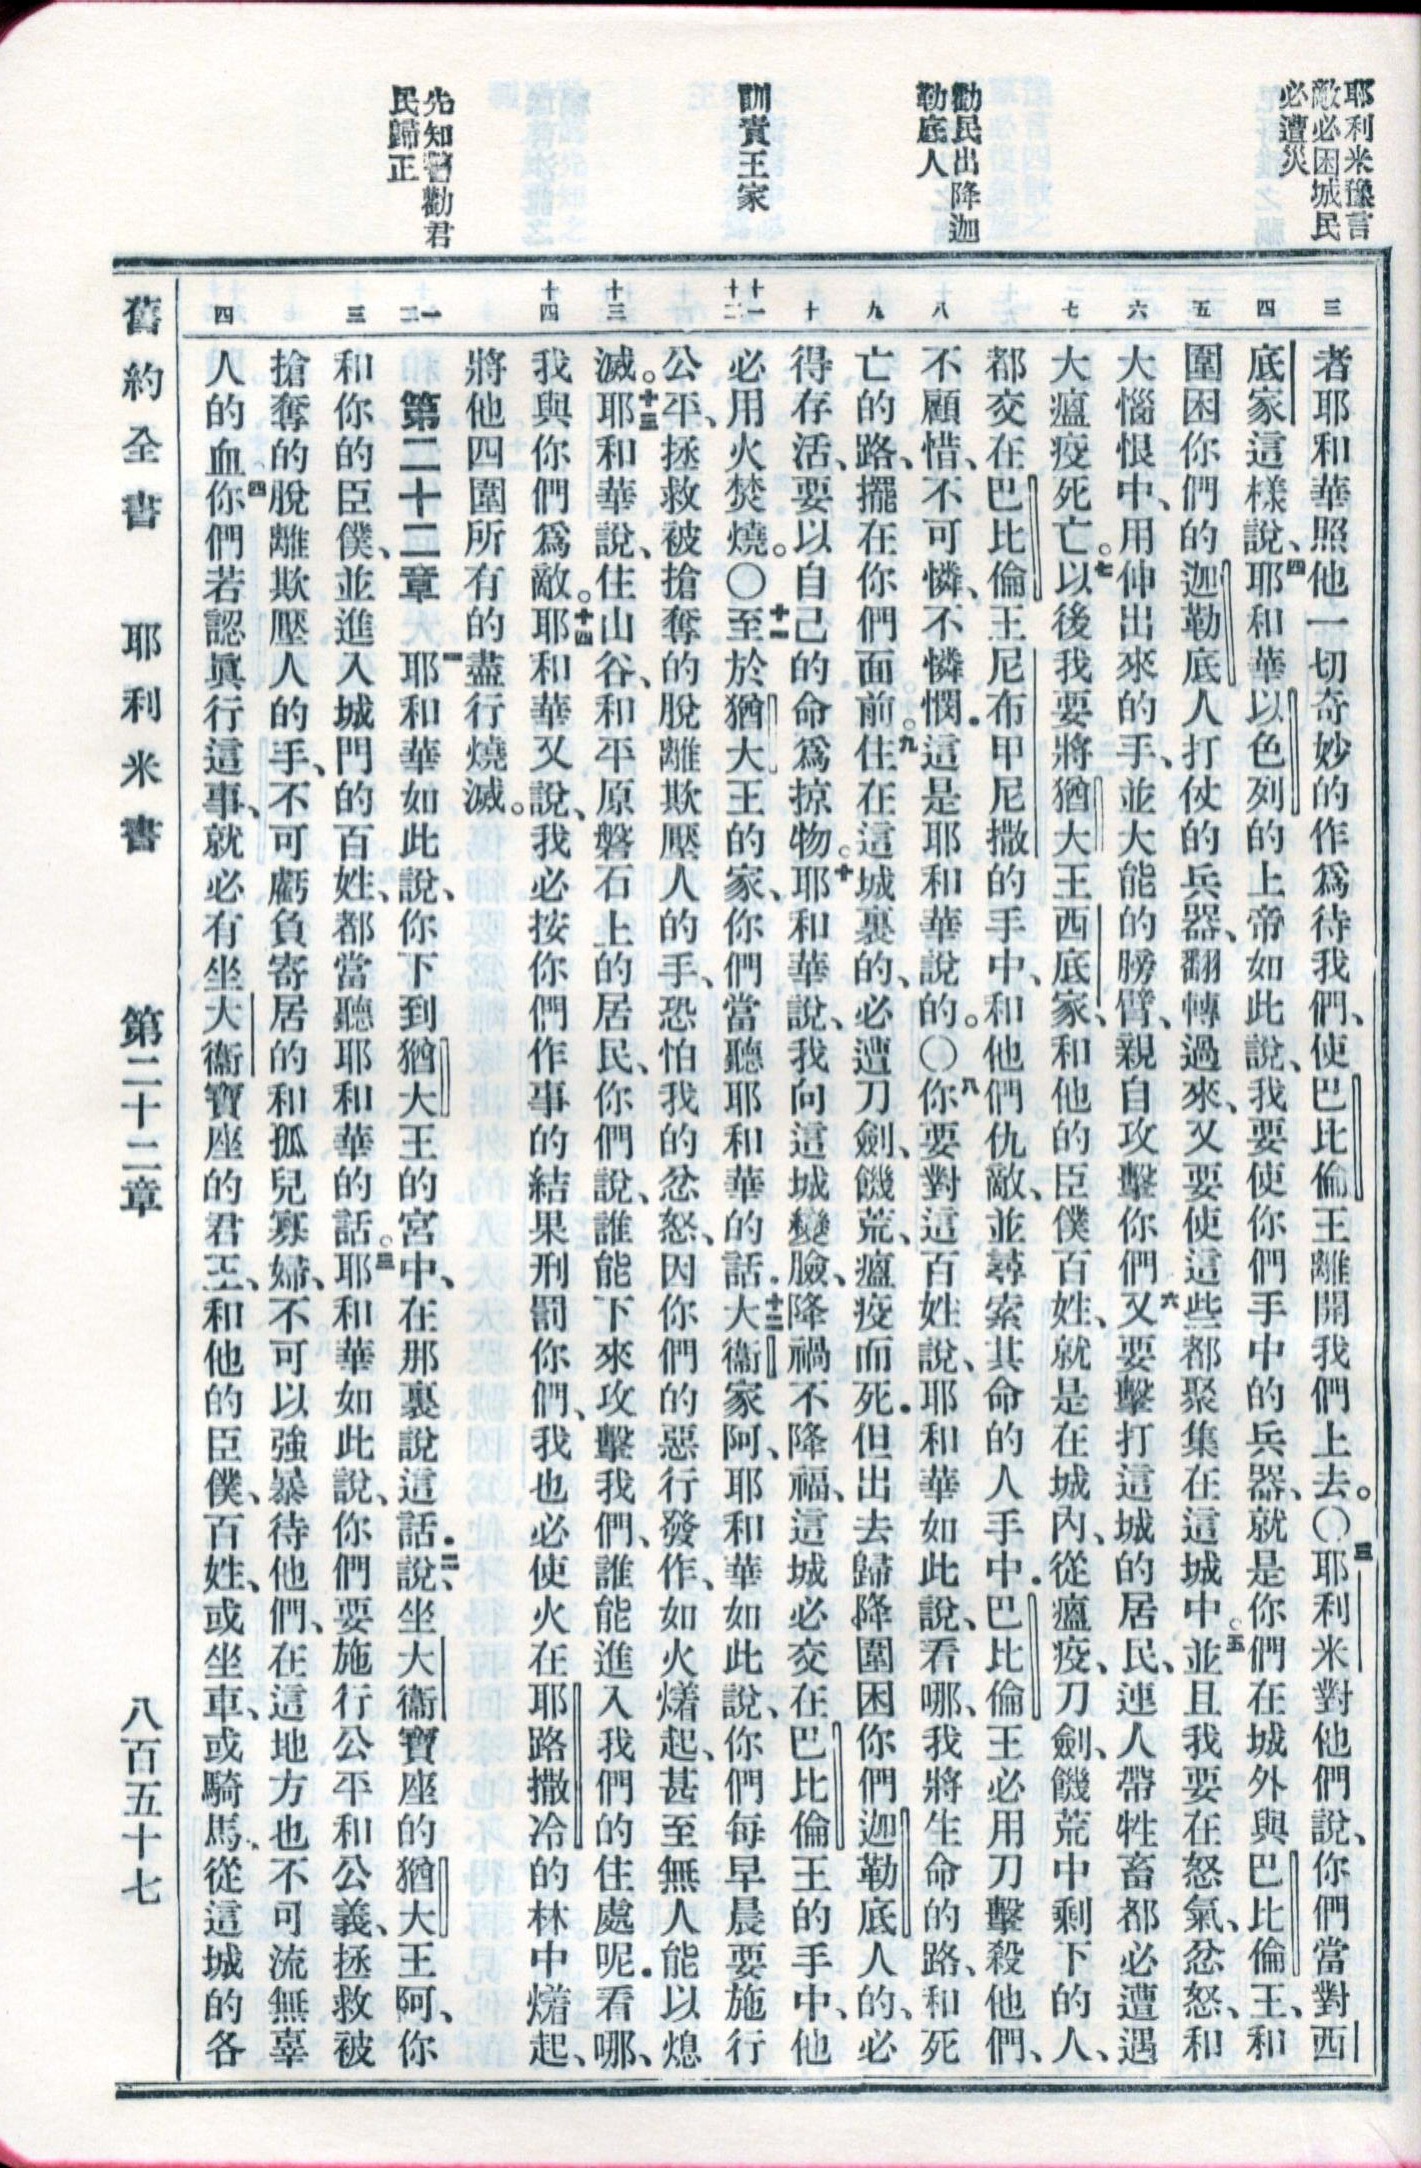 耶利米豫言
敵必困城民
必遭災
勸民出降迦
勒底人
訓責王家
先知警勸君
民歸正
三
四
五
六
七
八
九
十
十一
十二
十三
十四
一
二
三
四
者耶和華照他一切奇妙的作爲待我們、使巴比倫王離開我們上去。〇三耶利米對他們說、你們當對西
底家這樣說、四耶和華以色列的上帝如此說、我要使你們手中的兵器、就是你們在城外與巴比倫王、和
圍困你們的迦勒底人打仗的兵器、翻轉過來、又要使這些都聚集在這城中。五並且我要在怒氣、忿怒、和
大惱恨中、用伸出來的手、並大能的膀臂、親自攻擊你們六又要擊打這城的居民、連人帶牲畜都必遭遇
大瘟疫死亡。七以後我要將猶大王西底家、和他的臣僕百姓、就是在城內、從瘟疫、刀劍、饑荒中剩下的人、
都交在巴比倫王尼布甲尼撒的手中、和他們仇敵、並尋索其命的人手中.巴比倫王必用刀擊殺他們、
不顧惜、不可憐、不憐憫.這是耶和華說的。〇八你要對這百姓說、耶和華如此說、看哪、我將生命的路、和死
亡的路、擺在你們面前。九住在這城裏的、必遭刀劍、饑荒、瘟疫而死.但出去歸降圍困你們迦勒底人的、必
得存活、要以自己的命爲掠物。十耶和華說、我向這城變臉、降禍不降福、這城必交在巴比倫王的手中、他
必用火焚燒。〇十一至於猶大王的家、你們當聽耶和華的話.十二大衞家阿、耶和華如此說、你們每早晨要施行
公平、拯救被搶奪的脫離欺壓人的手、恐怕我的忿怒、因你們的惡行發作、如火㷮起、甚至無人能以熄
滅。十三耶和華說、住山谷、和平原磐石上的居民、你們說、誰能下來攻擊我們、誰能進入我們的住處呢.看哪、
我與你們爲敵。十四耶和華又說、我必按你們作事的結果刑罰你們、我也必使火在耶路撒冷的林中㷮起、
將他四圍所有的盡行燒滅。
第二十二章 一耶和華如此說、你下到猶大王的宮中、在那裏說這話.二說、坐大衞寶座的猶大王阿、你
和你的臣僕、並進入城門的百姓、都當聽耶和華的話。三耶和華如此說、你們要施行公平和公義、拯救被
搶奪的脫離欺壓人的手、不可虧負寄居的和孤兒寡婦、不可以強暴待他們、在這地方也不可流無辜
人的血。四你們若認眞行這事、就必有坐大衞寶座的君王、和他的臣僕、百姓、或坐車、或騎馬、從這城的各
舊約全書 耶利米書 第二十二章 八百五十七